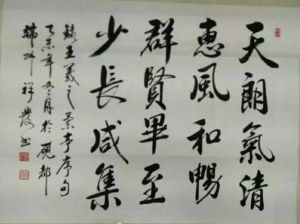 天朗氣清
惠風和暢
群賢畢至
少長咸集
錄王羲之蘭亭序句
乙未年冬月於
韓